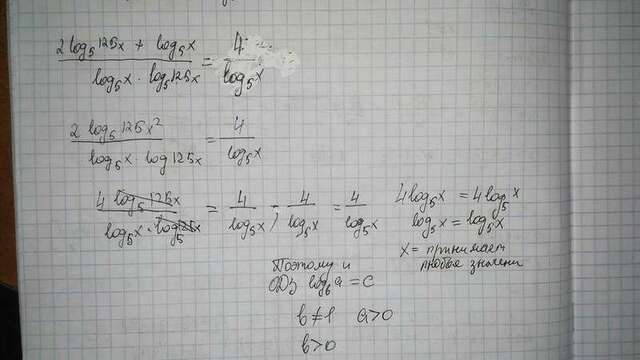 (2log₅125x + log₅x) / (log₅x · log₅125x) = 4 / log₅x
(2 log₅125x²) / (log₅x · log125x) = 4 / log₅x
(4 log₅125x) / (log₅x · log₅125x) = 4 / log₅x ; 4 / log₅x = 4 / log₅x
4log₅x = 4log₅x
log₅x = log₅x
x = принимает
любые значени
Поэтому и
ОДЗ log_b a = c
b≠1 a>0
b>0